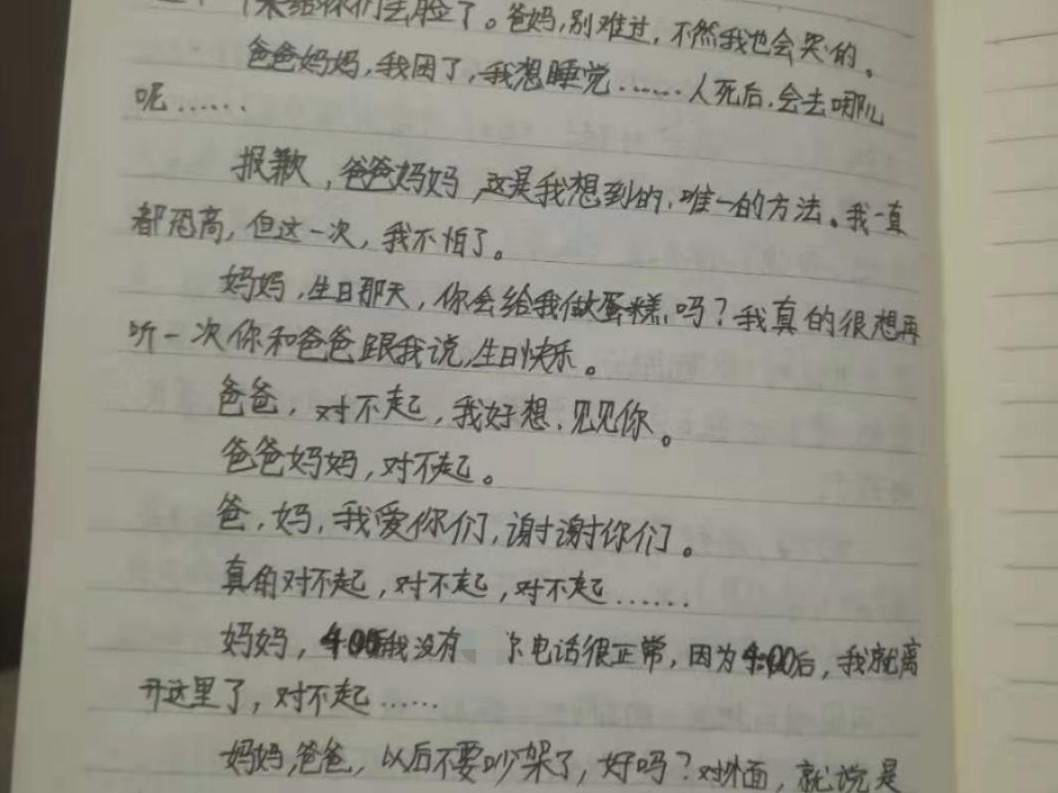 给你们丢脸了。爸妈,别难过,不然我也会哭的。
爸爸妈妈,我困了,我想睡觉……人死后,会去哪儿
呢……
报歉,爸爸妈妈,这是我想到的,唯一的方法。我一直
都恐高,但这一次,我不怕了。
妈妈,生日那天,你会给我做蛋糕吗?我真的很想再
听一次你和爸爸跟我说,生日快乐。
爸爸,对不起,我好想,见见你。
爸爸妈妈,对不起。
爸,妈,我爱你们,谢谢你们。
真的对不起,对不起,对不起……
妈妈,4:00后我没有 电话很正常,因为4:00后,我就离
开这里了,对不起……
妈妈,爸爸,以后不要吵架了,好吗?对外面,就说是